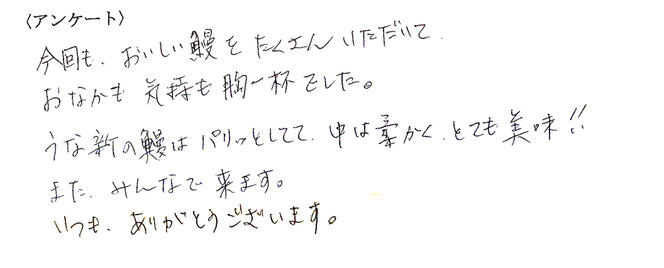 〈アンケート〉
今回も、おいしい鰻をたくさんいただいて、
おなかも気持も胸一杯でした。
うな新の鰻はパリッとしてて、中は柔かく、とても美味!!
また、みんなで来ます。
いつも、ありがとうございます。